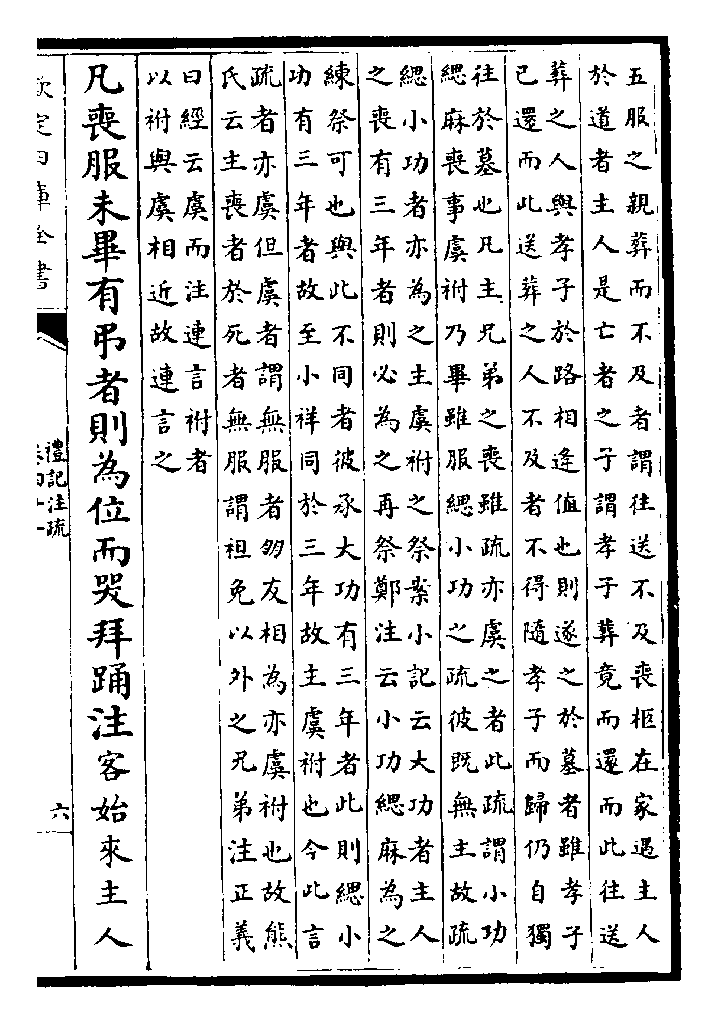 五服之親葬而不及者謂往送不及喪柩在家遇主人
於道者主人是亡者之子謂孝子葬竟而還而此往送
葬之人與孝子於路相逢值也則遂之於墓者雖孝子
已還而此送葬之人不及者不得隨孝子而歸仍自獨
往於墓也凡主兄弟之喪雖疏亦虞之者此疏謂小功
緦麻喪事虞祔乃畢雖服緦小功之疏彼既無主故疏
緦小功者亦為之主虞祔之祭案小記云大功者主人
之喪有三年者則必為之再祭鄭注云小功緦麻為之
練祭可也與此不同者彼承大功有三年者此則緦小
功有三年者故至小祥同於三年故主虞祔也今此言
疏者亦虞但虞者謂無服者朋友相為亦虞祔也故熊
氏云主喪者於死者無服謂袒免以外之兄弟注正義
曰經云虞而注連言祔者
以祔與虞相近故連言之
凡喪服未畢有弔者則為位而哭拜踊注客始來主人
欽定四庫全書
禮記注疏
卷四十一
六